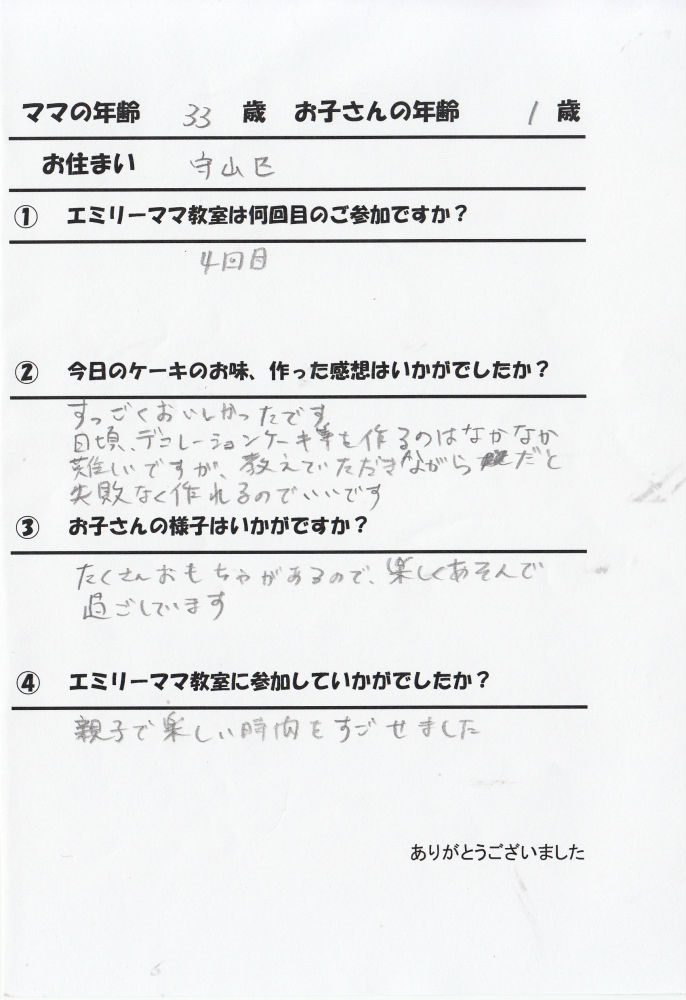 ママの年齢 33 歳 お子さんの年齢 1 歳
お住まい 守山区
① エミリーママ教室は何回目のご参加ですか？
4回目
② 今日のケーキのお味、作った感想はいかがでしたか？
すっごくおいしかったです
日頃、デコレーションケーキ等を作るのはなかなか
難しいですが、教えていただきながらだと
失敗なく作れるのでいいです
③ お子さんの様子はいかがですか？
たくさんおもちゃがあるので、楽しくあそんで
過ごしています
④ エミリーママ教室に参加していかがでしたか？
親子で楽しい時間をすごせました
ありがとうございました